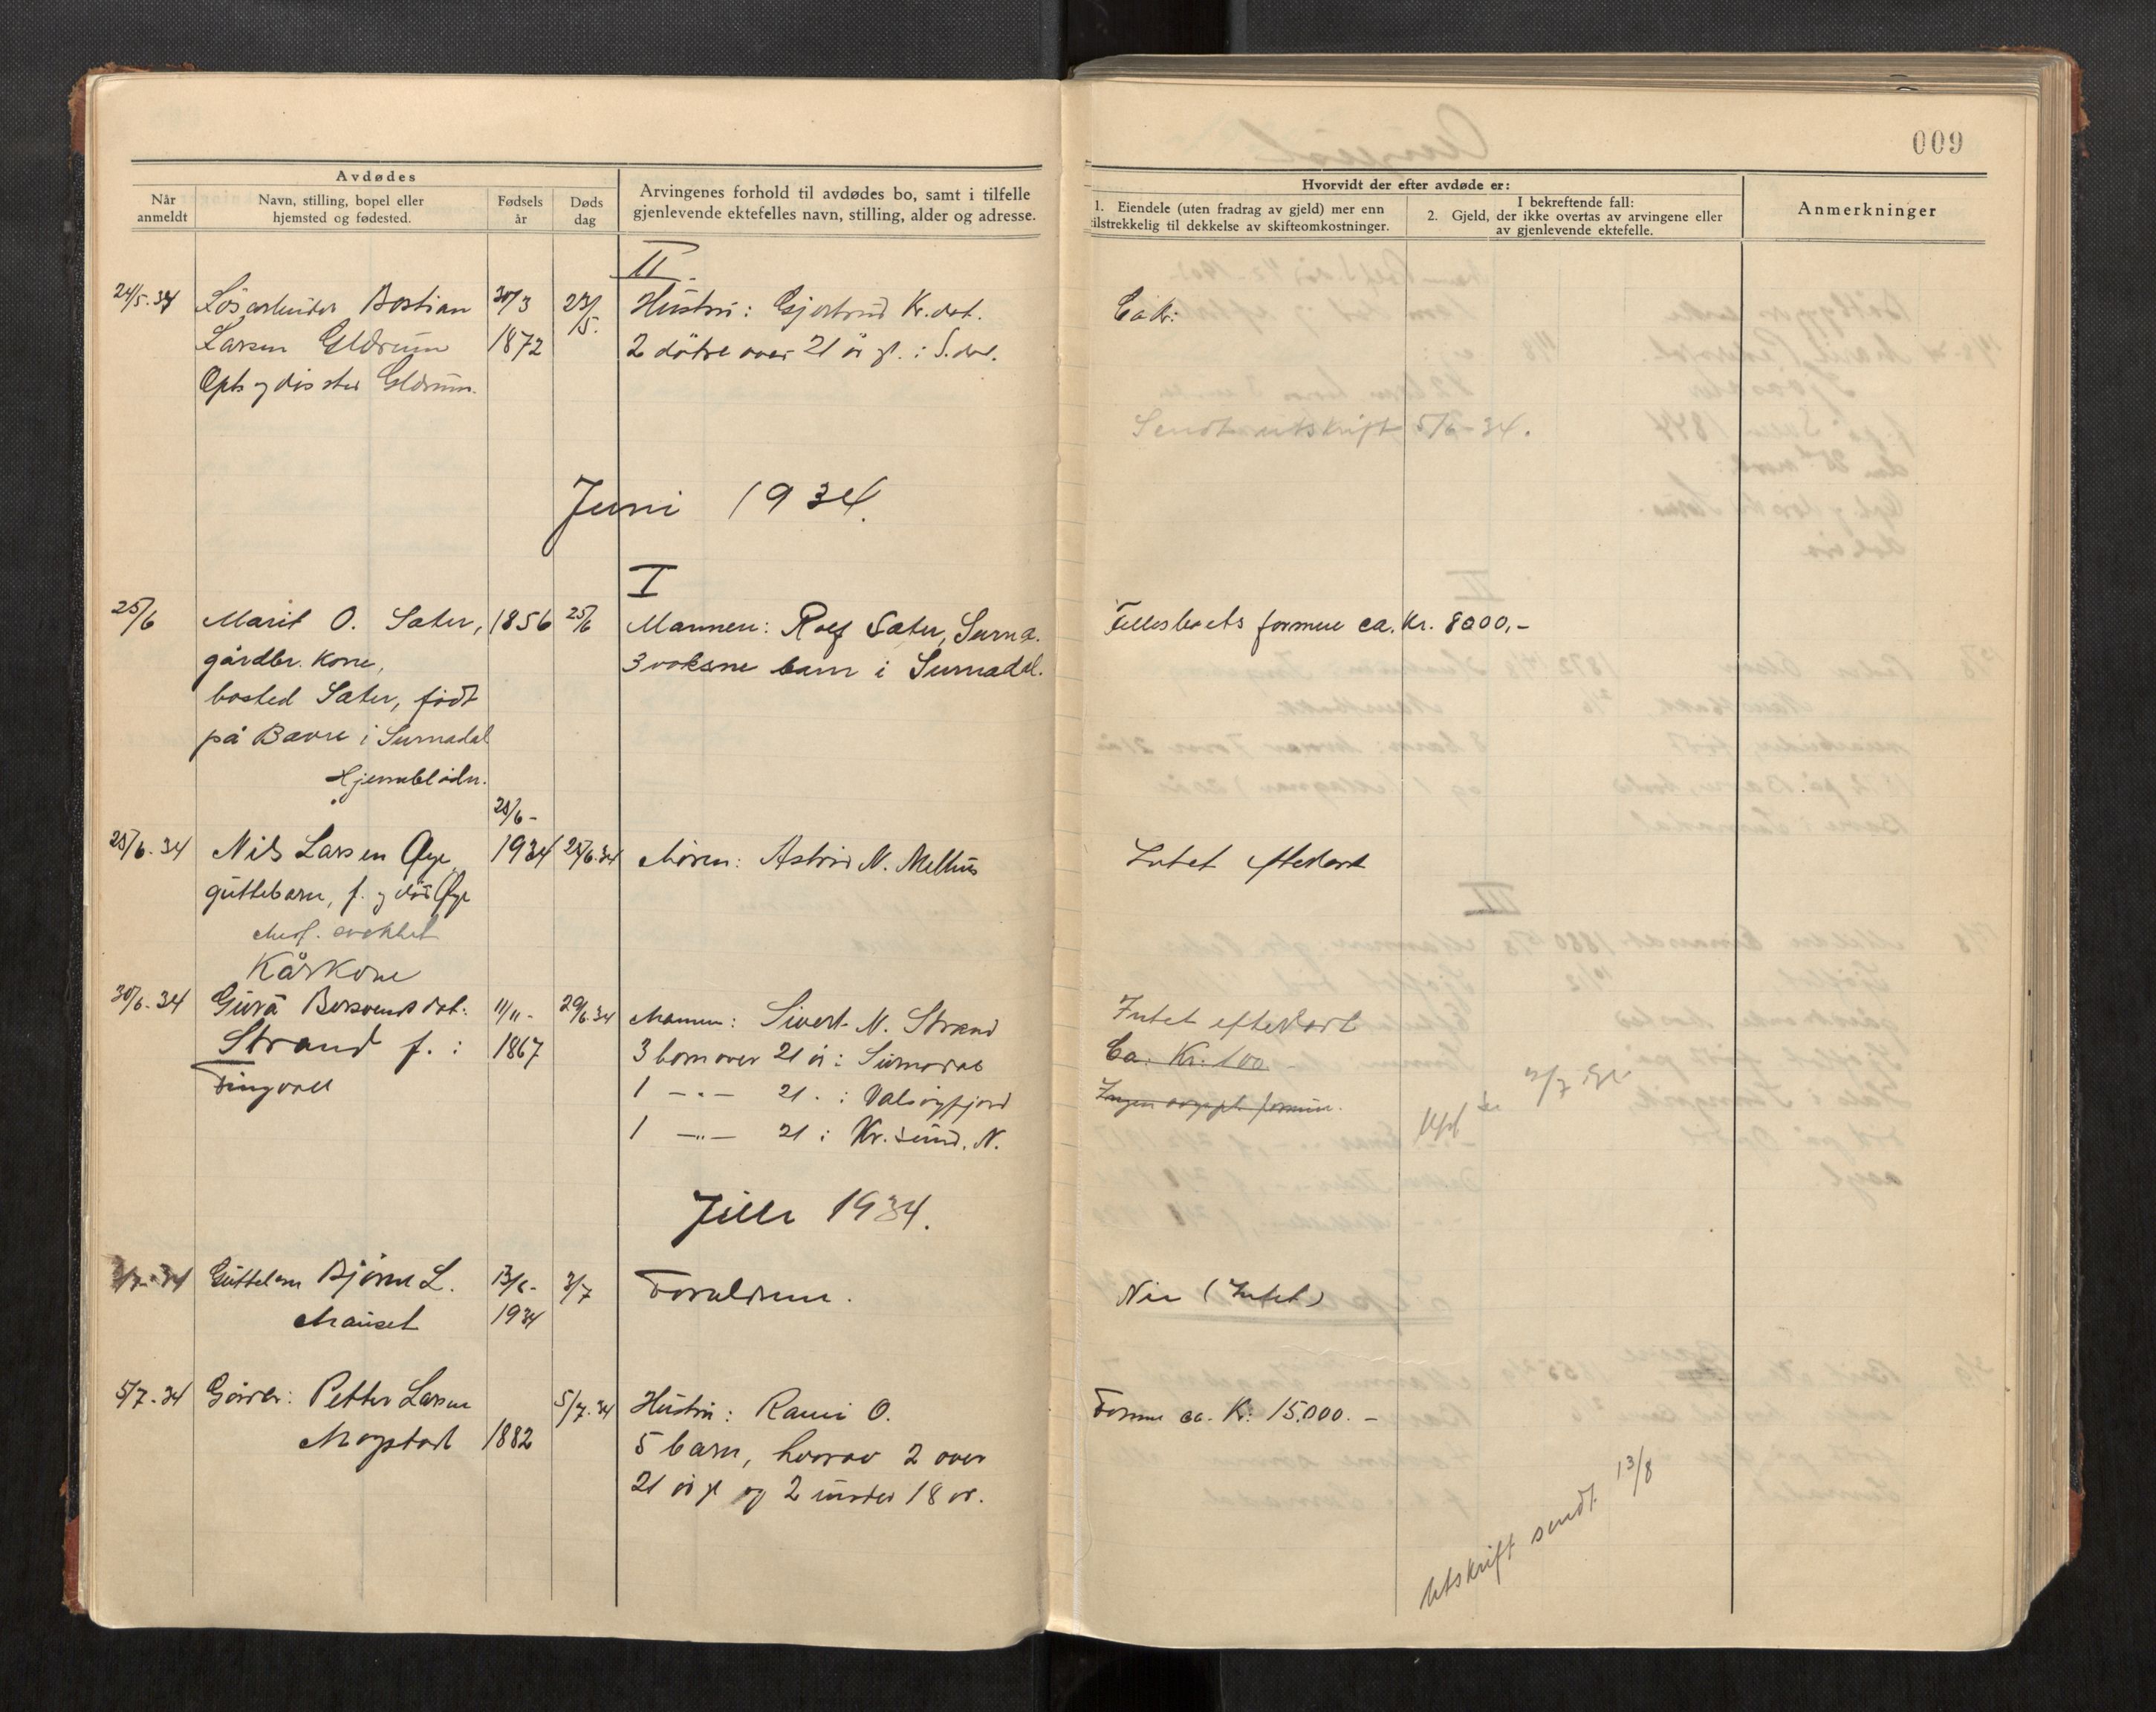 009
Avdødes
Når anmeldt
Navn, stilling, bopel eller hjemsted og fødested.
Fødsels år
Døds dag
Arvingenes forhold til avdødes bo, samt i tilfelle gjenlevende ektefelles navn, stilling, alder og adresse.
Hvorvidt der efter avdøde er:
1. Eiendele (uten fradrag av gjeld) mer enn tilstrekkelig til dekkelse av skifteomkostninger.
I bekreftende fall:
2. Gjeld, der ikke overtas av arvingene eller av gjenlevende ektefelle.
Anmerkninger
II
24/5.34 Løsarbeider Bastian 30/3 23/5. Hustru: Gjertrud Kr.dat. Ca Kr:
Larsen Eldrum 1872 2 døtre over 21 år gl. i S.dal.
Eldrum.
Sendt utskrift 5/6-34.
Juni 1934.
I
25/6 Marit O. Sæter, 1856 25/6 Mannen: Rolf Sæter, Surnd. Fellesboets formue ca. Kr. 8000,-
gårdbr. kone, 3 voksne barn i Surnadal.
bosted Sæter, født
på Bævre i Surnadal
Hjerneblødn.
25/6.34 Nils Larsen Øye 25/6- 1934 25/6.34 Moren: Astrid N. Melhus Intet efterlatt
guttebarn, f. og død Øye
Kårkone
30/6.34 Gurå Bersvendsdat: 11/11- 29/6.34 Mannen: Sivert N. Strand Intet efterlatt
Strand f. i 1867 3 barn over 21 år i Surnadal Ca. Kr: 100
Tingvoll 1 -"- 21 i Valsøyfjord
1 -"- 21 i Kr.sund. N.
Juli 1934.
Guttebarn Bjørn L. 13/6- 3/7 Foreldrene. Nei (Intet)
Mauset 1934
5/7-34 Gårdbr: Petter Larsen 5/7.34 Hustru: Rami O. Formue ca. Kr: 15.000.-
Mogstad 1882 5 barn, hvorav 2 over
21 år gl og 2 under 18 år.
Utskrift sendt 13/8